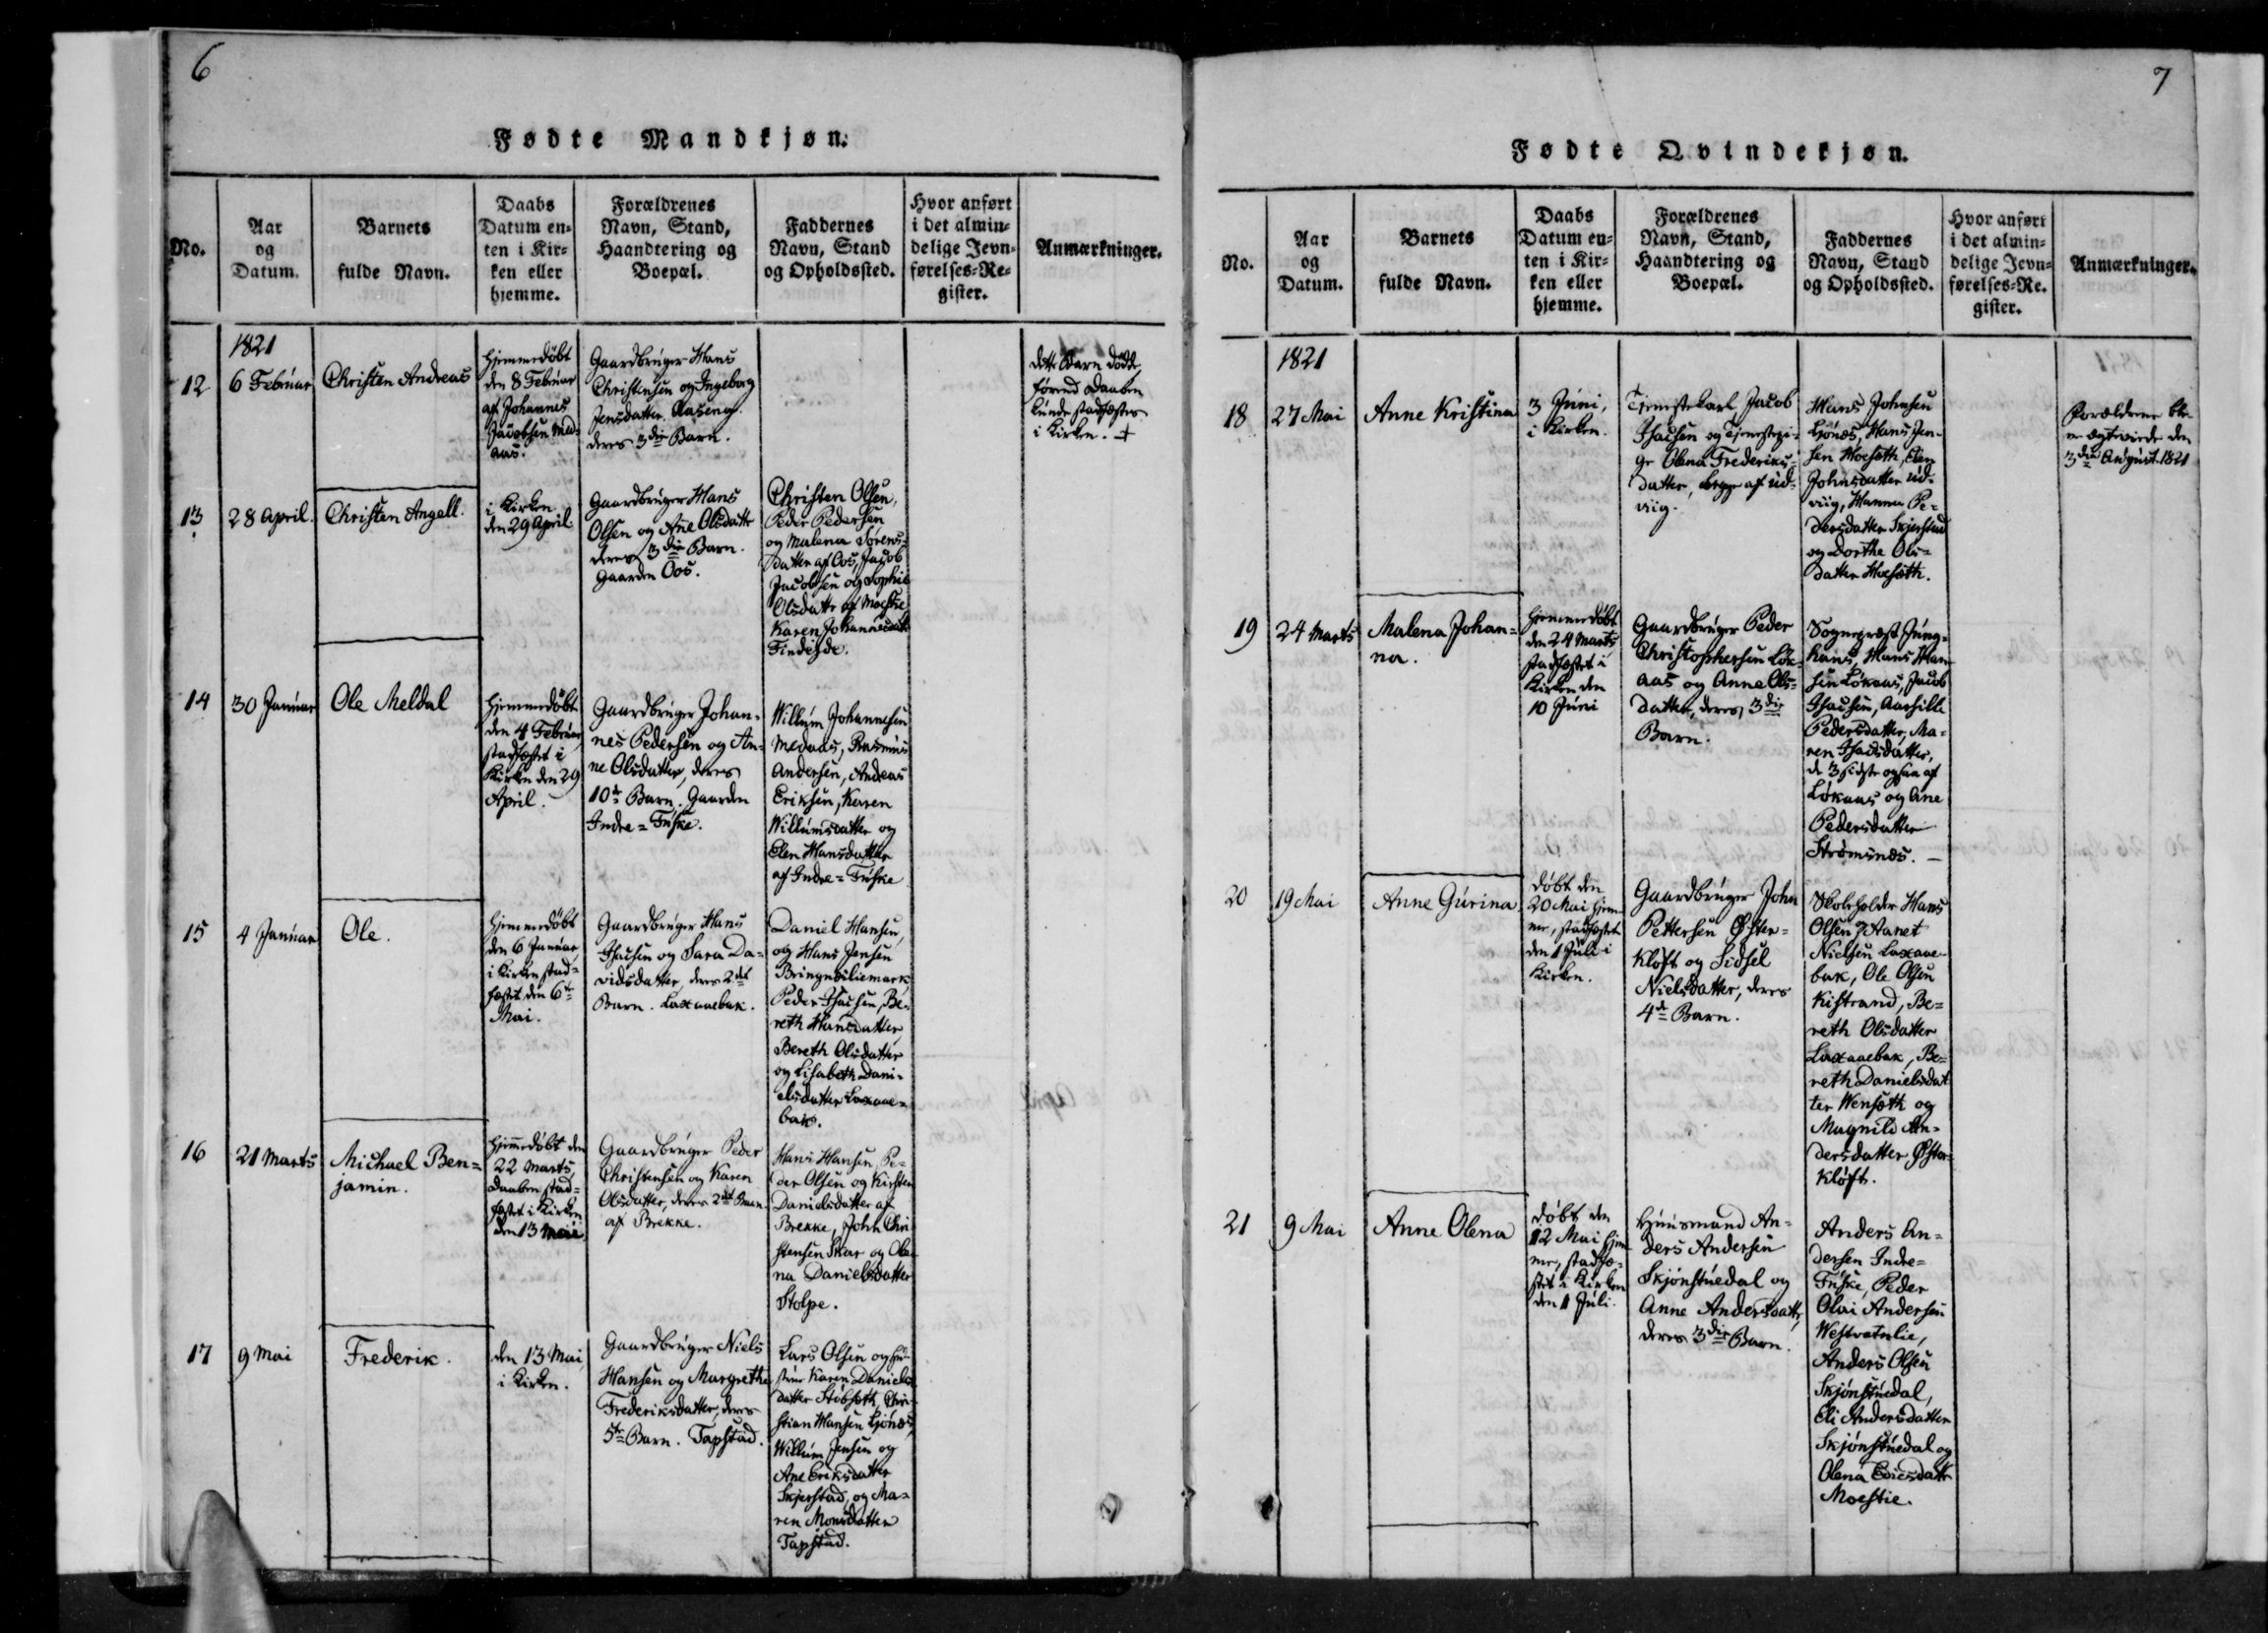 6
Fødte Mandkjøn.
No.
Aar
og
Datum.
Barnets
fulde Navn.
Daabs
Datum en-
ten i Kir-
ken eller
hjemme.
Forældrenes
Navn, Stand,
Haandtering og
Boepæl.
Faddernes
Navn, Stand
og Opholdssted.
Hvor anført
i det almin-
delige Jevn-
førelses-Re-
gister.
Anmærkninger.
1821
12
6 Februar
Christen Andreas
Hjemmedöbt
den 8 Februar
af Johannes
Jacobsen Med-
aas.
Gaardbruger Hans
Christensen og Ingeborg
Jensdatter Aaseng.
deres 3die Barn.
dette Barn döde
förend Daaben
kunde stadfæstes
i Kirken. +
13
28 April.
Christen Angell.
i Kirken
den 29 April
Gaardbruger Hans
Olsen og Ane Olsdatter
deres 3die Barn.
Gaarden Oos.
Christen Olsen,
Peder Pedersen
og Malena Sörens-
datter af Oos, Jacob
Jacobsen og Sophie
Olsdattr af Moestie
Karen Johannesdatt
Fineide.
14
30 Januar
Ole Meldal
Hjemmedöbt
den 4 Februar
stadfæstet i
Kirken den 29
April.
Gaardbruger Johan-
nes Pedersen og An-
ne Olsdatter, deres
10de Barn. Gaarden
Indre-Fuske.
Willum Johannesen
Medaas, Rasmus
Andersen, Andreas
Eriksen, Karen
Willumsdatter og
Elen Hansdatter
af Indre-Fuske
15
4 Januar
Ole.
Hjemmedöbt
den 6 Januar,
i Kirken stad-
fæstet den 6te
Mai.
Gaardbruger Hans
Isacsen og Sara Da-
vidsdatter, deres 2det
Barn. Laxaaebak.
Daniel Hansen,
og Hans Jensen
Bringnesliemark
Peder Isacsen, Be-
reth Hansdatter
Bereth Olsdatter
og Lisabeth Dani-
elsdatter Laxaae-
bak.
16
21 Marts
Michael Ben-
jamin.
Hjemedöbt den
22 Marts
Daaben stad-
fæstet i Kirken
den 13 Maii
Gaardbruger Peder
Christensen og Karen
Olsdatter, deres 2det Barn
af Brekke.
Hans Hansen, Pe-
der Olsen og Kirsten
Danielsdatter af
Brekke, John Chri-
stensen Skar og Ole-
na Danielsdatter
Stolpe.
17
9 Mai
Frederik.
den 13 Mai
i Kirken.
Gaardbruger Niels
Hansen og Margrethe
Frederiksdatter, deres
5te Barn. Tapstad.
Lars Olsen og Hu-
strue Karen Daniels-
datter Stobseth, Chri-
stian Hansen Ljönæs,
Willum Jensen og
Ane Eriksdatter
Skjerstad, og Ma-
ren Monsdatter
Tapstad.
7
Fødte Qvindekjøn.
No.
Aar
og
Datum.
Barnets
fulde Navn.
Daabs
Datum en-
ten i Kir-
ken eller
hjemme.
Forældrenes
Navn, Stand,
Haandtering og
Boepæl.
Faddernes
Navn, Stand
og Opholdssted.
Hvor anført
i det almin-
delige Jevn-
førelses-Re-
gister.
Anmærkninger.
1821
18
27 Mai
Anne Kristina
3 Juni,
i Kirken.
Tjenestekarl Jacob
Isacsen og Tjenestepi-
ge Olena Frederiks-
datter, begge af Ud-
viig.
Hans Johnsen
Ljönæs, Hans Jen-
sen Hoeseth, Elen
Johnsdatter Ud-
viig, Hanna Pe-
dersdatter Skjerstad
og Dorthe Ols-
datter Hoeseth.
Forældrene ble-
ve ægteviede den
3die August 1821
19
24 Marts
Malena Johan-
na.
Hjemmedöbt
den 24 Marts
stadfæstet i
Kirken den
10 Juni
Gaardbruger Peder
Christophersen Løk-
aas og Anne Ols-
datter, deres 3die
Barn.
Sognepræst Jung-
hans, Hans Han-
sen Løkaas, Jacob
Isacsen, Aashille
Pedersdatter, Ma-
ren Isacsdatter,
de 3 sidste ogsaa af
Løkaas og Ane
Pedersdatter
Strømsnæs. —
20
19 Mai
Anne Gurina
döbt den
20 Mai hjem-
me, stadfæstet
den 1 Juli i
Kirken.
Gaardbruger John
Pettersen Øster-
kløft og Sidsel
Nielsdatter, deres
4de Barn.
Skoleholder Hans
Olsen,
Nielsen Laxaae-
bak, Ole Olsen
Kistrand, Be-
reth Olsdatter
Laxaaebak, Be-
reth Danielsdat
ter Wenseth og
Magnild An-
dersdatter Øster-
kløft.
21
9 Mai
Anne Olena
döbt den
12 Mai hjem
me, stadfæ-
stet i Kirken
den 1 Juli.
Huusmand An-
ders Andersen
Skjönstuedal og
Anne Andersdatt,
deres 3die Barn.
Anders An-
dersen Indre-
Fuske, Peder
Olai Andersen
Westvatnlie,
Anders Olsen
Skjönstuedal,
Eli Andersdatter
Skjönstuedal og
Olena
Moestie.